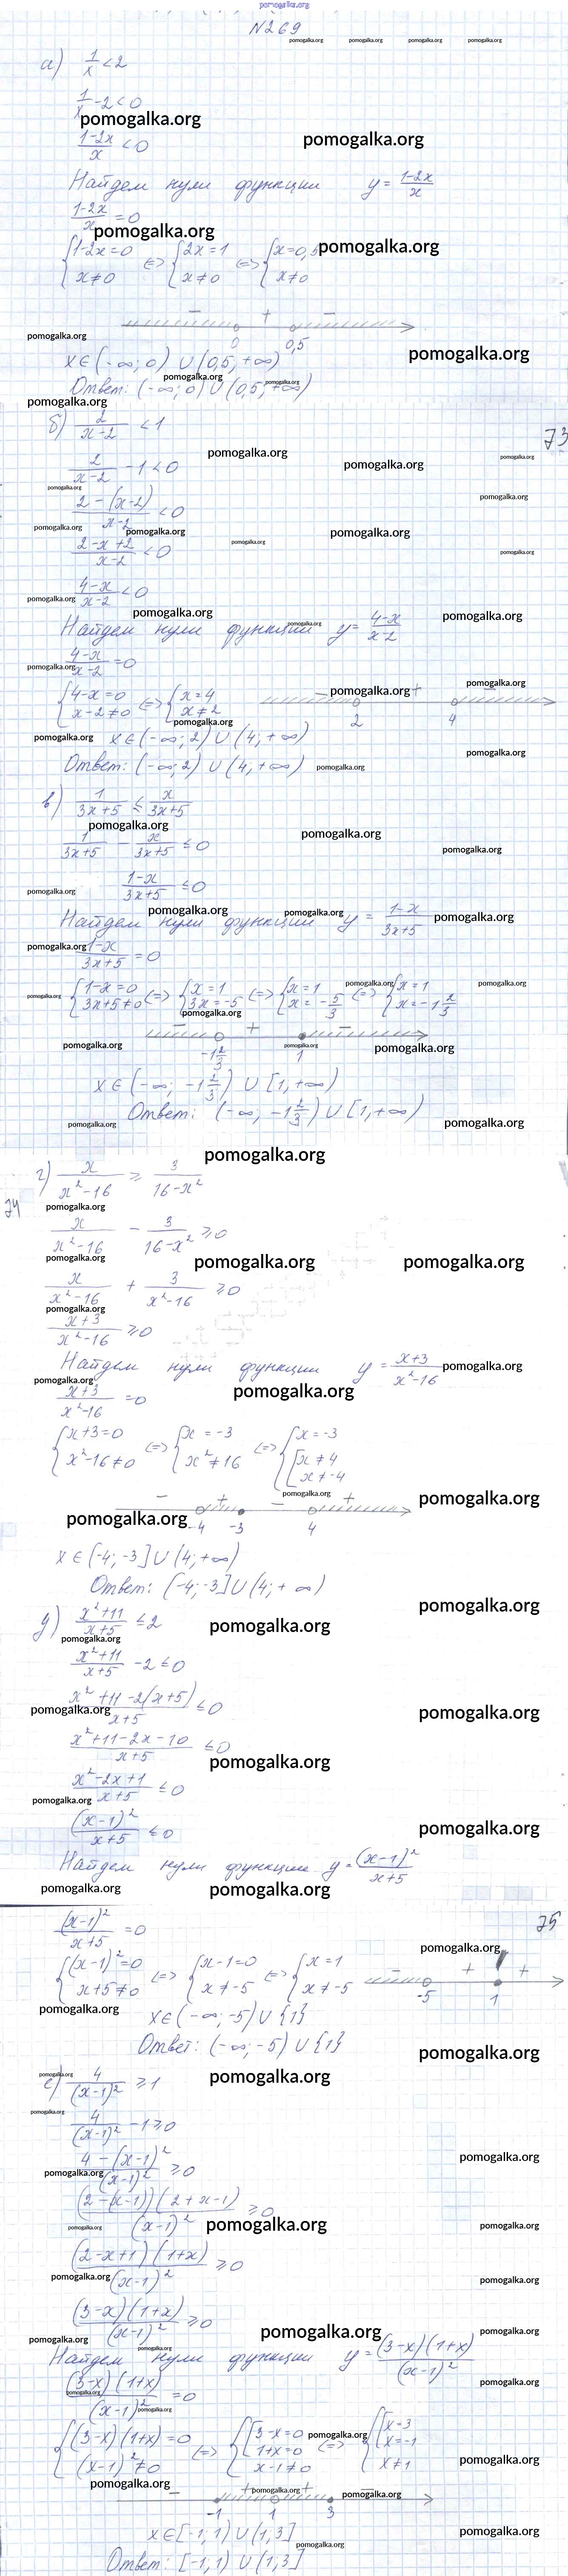 N269
а) 1/x < 2
1/x - 2 < 0
(1-2x)/x < 0
Найдем нули функции y = (1-2x)/x
(1-2x)/x = 0
{1-2x=0 x≠0 <=> {2x=1 x≠0 <=> {x=0,5 x≠0
- + -
0 0,5
x∈(-∞; 0) ∪ (0,5; +∞)
Ответ: (-∞; 0) ∪ (0,5; +∞)
73
б) 2/(x-2) < 1
2/(x-2) - 1 < 0
(2-(x-2))/(x-2) < 0
(2-x+2)/(x-2) < 0
(4-x)/(x-2) < 0
Найдем нули функции y = (4-x)/(x-2)
(4-x)/(x-2) = 0
{4-x=0 x-2≠0 <=> {x=4 x≠2
- + -
2 4
x∈(-∞; 2) ∪ (4; +∞)
Ответ: (-∞; 2) ∪ (4; +∞)
в) 1/(3x+5) ≤ x/(3x+5)
1/(3x+5) - x/(3x+5) ≤ 0
(1-x)/(3x+5) ≤ 0
Найдем нули функции y = (1-x)/(3x+5)
(1-x)/(3x+5) = 0
{1-x=0 3x+5≠0 <=> {x=1 3x=-5 <=> {x=1 x=-5/3 <=> {x=1 x=-1 2/3
- + -
-1 2/3 1
x∈(-∞; -1 2/3) ∪ [1, +∞)
Ответ: (-∞; -1 2/3) ∪ [1, +∞)
74
г) x/(x²-16) ≥ 3/(16-x²)
x/(x²-16) - 3/(16-x²) ≥ 0
x/(x²-16) + 3/(x²-16) ≥ 0
(x+3)/(x²-16) ≥ 0
Найдем нули функции y = (x+3)/(x²-16)
(x+3)/(x²-16) = 0
{x+3=0 x²-16≠0 <=> {x=-3 x²≠16 <=> {x=-3 [x≠4 x≠-4
- + - +
-4 -3 4
x∈(-4; -3] ∪ (4; +∞)
Ответ: (-4; -3] ∪ (4; +∞)
д) (x²+11)/(x+5) ≤ 2
(x²+11)/(x+5) - 2 ≤ 0
(x²+11-2(x+5))/(x+5) ≤ 0
(x²+11-2x-10)/(x+5) ≤ 0
(x²-2x+1)/(x+5) ≤ 0
(x-1)²/(x+5) ≤ 0
Найдем нули функции y = (x-1)²/(x+5)
75
(x-1)²/(x+5) = 0
{(x-1)²=0 x+5≠0 <=> {x-1=0 x≠-5 <=> {x=1 x≠-5
- + +
-5 1
x∈(-∞; -5) ∪ {1}
Ответ: (-∞; -5) ∪ {1}
е) 4/(x-1)² ≥ 1
4/(x-1)² - 1 ≥ 0
(4-(x-1)²)/(x-1)² ≥ 0
(2-(x-1))(2+x-1)/(x-1)² ≥ 0
(2-x+1)(1+x)/(x-1)² ≥ 0
(3-x)(1+x)/(x-1)² ≥ 0
Найдем нули функции y = (3-x)(1+x)/(x-1)²
(3-x)(1+x)/(x-1)² = 0
{(3-x)(1+x)=0 (x-1)²≠0 <=> {[3-x=0 1+x=0 x-1≠0 <=> {[x=3 x=-1 x≠1
- + + -
-1 1 3
x∈[-1; 1) ∪ (1, 3]
Ответ: [-1, 1) ∪ (1; 3]
pomogalka.org